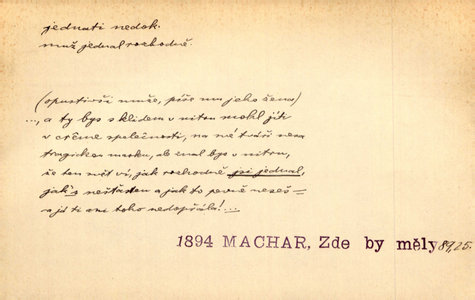 jednati nedok.
muž jednal rozhodně.
(opustivší muže, píše mu jeho žena)
..., a ty bys s klidem v nitru mohl jít
v crême společnosti, na mé tvář nesa
tragickou masku, ale znal bys v nitru,
že ten svět ví, jak rozhodně jsi jednal,
jak's nešťasten a jak to pevně neseš —
a já ti ani toho nedopřála! ...
1894 MACHAR, Zde by měly 89,25.